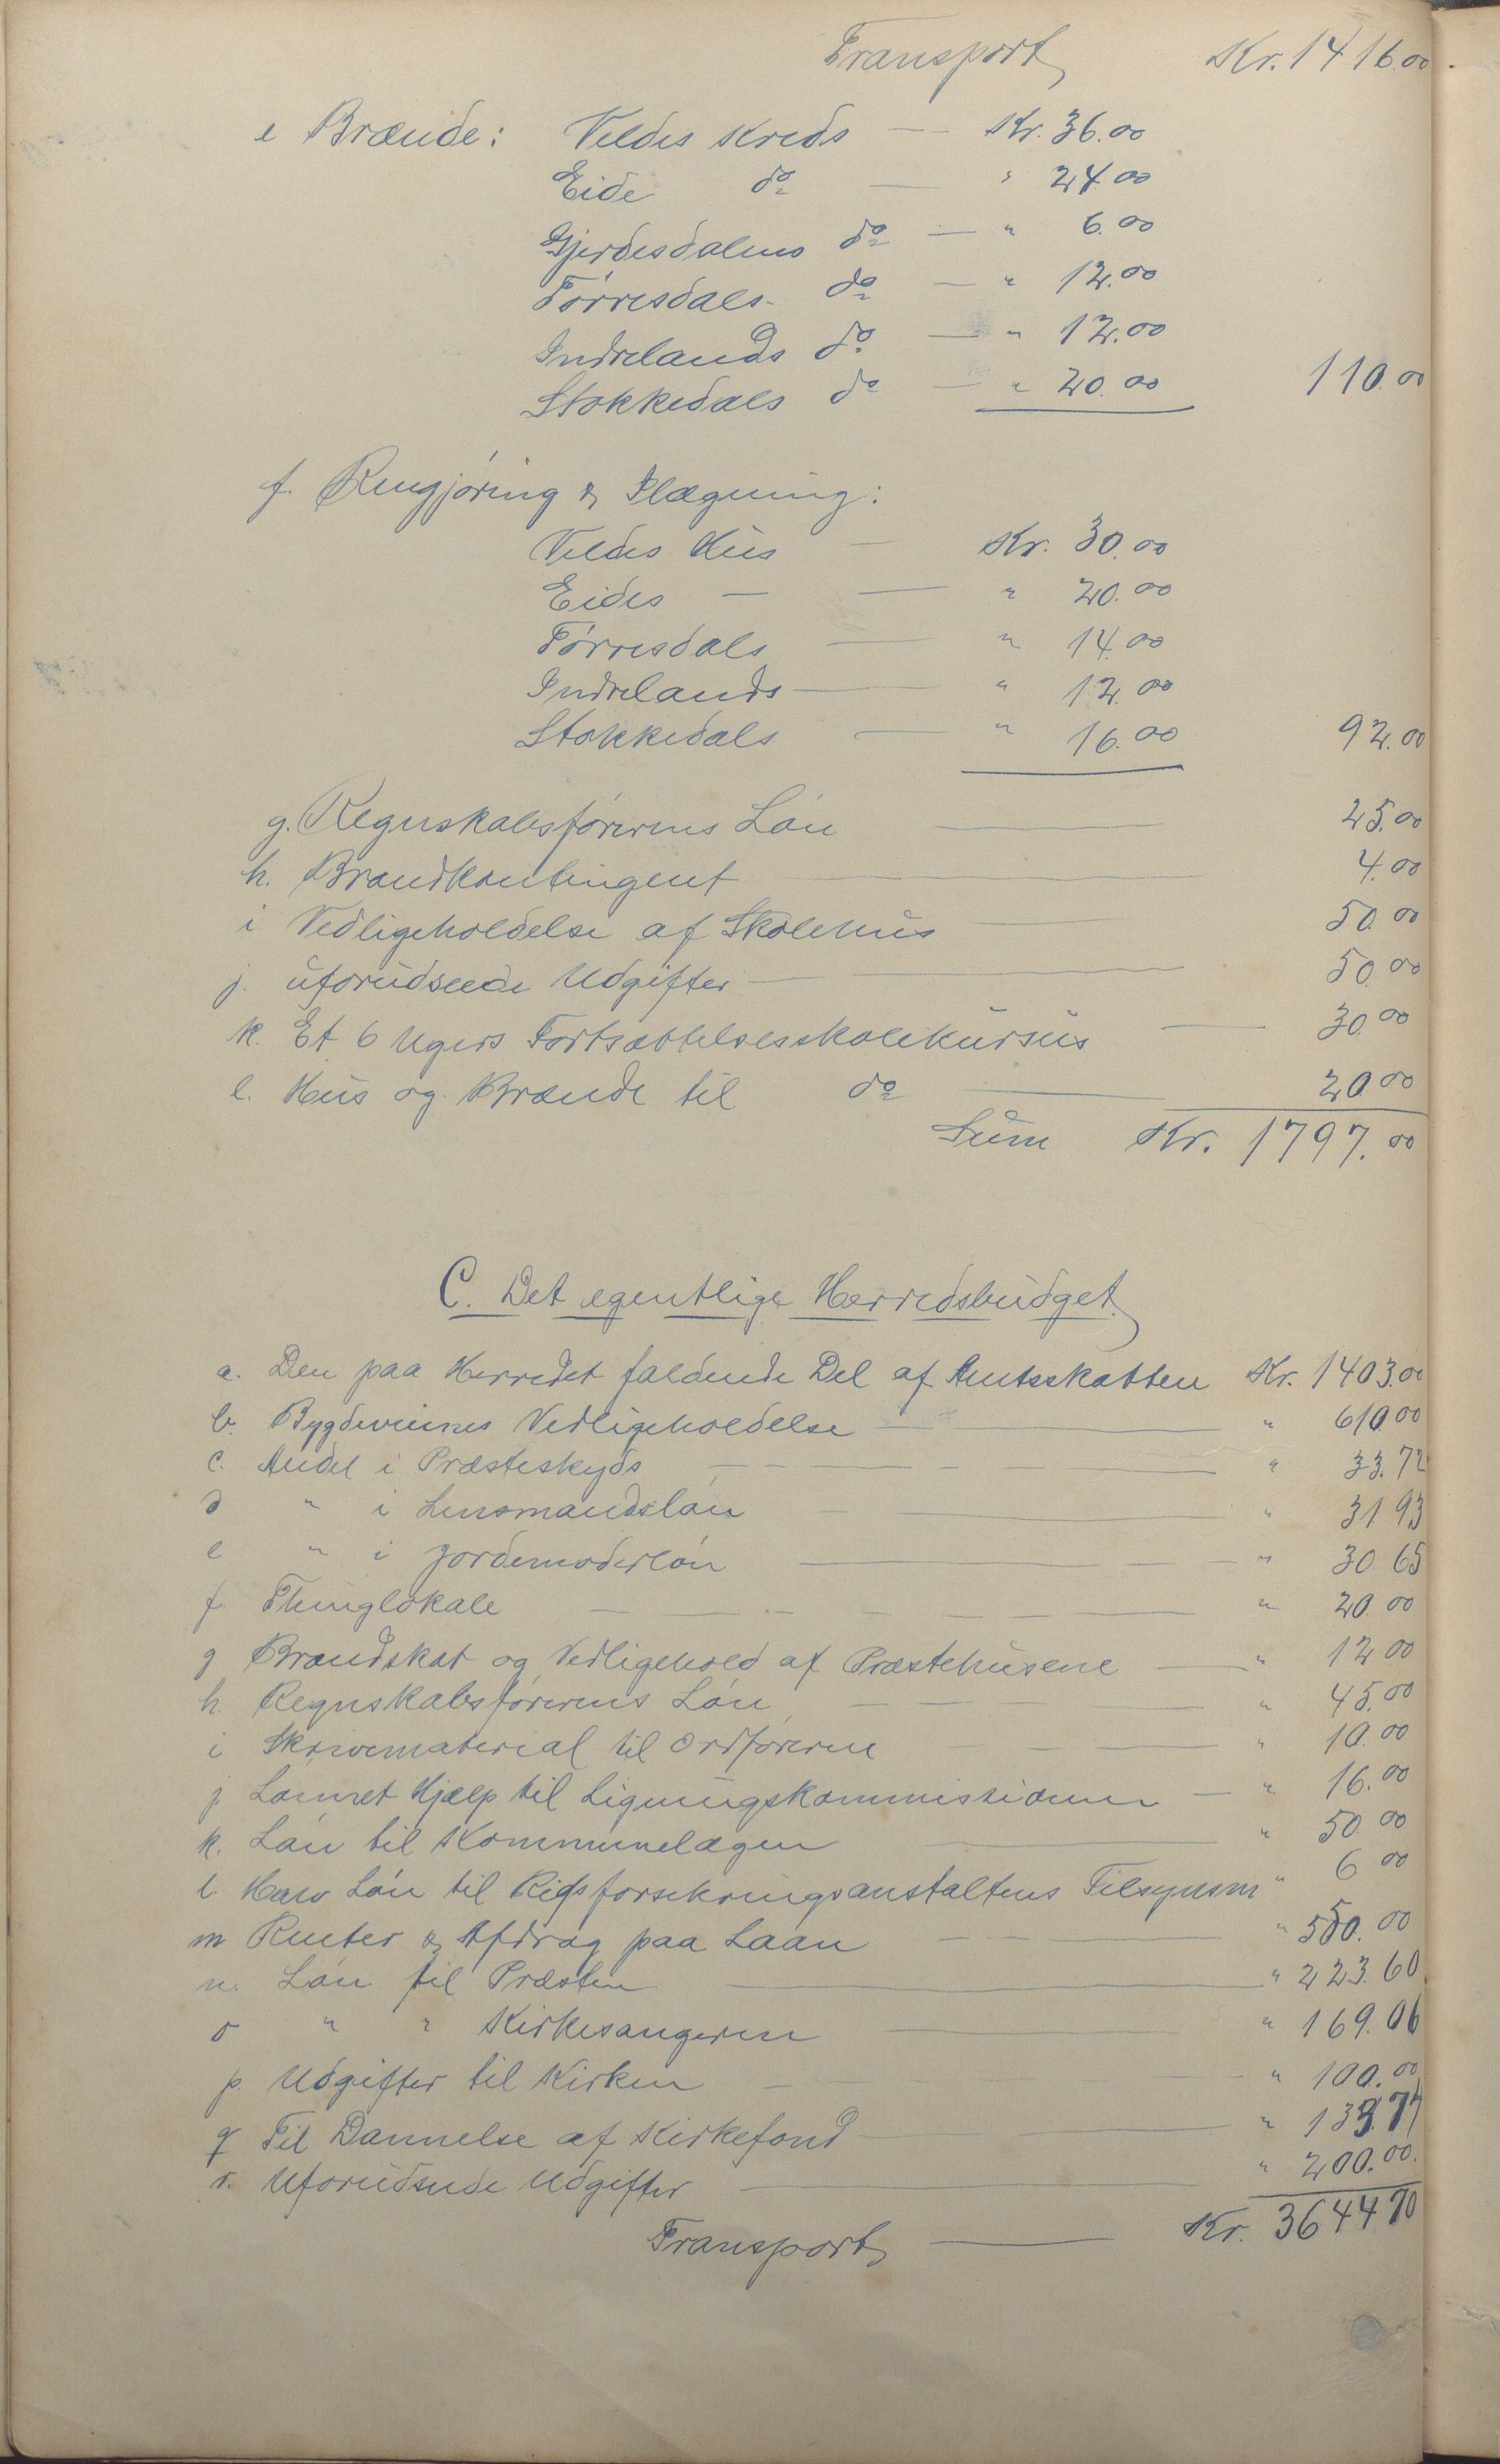 Transport Kr. 1416.00
e Brænde: Veldes Kreds — Kr. 36.00
Eide do — " 24.00
Gjerdesdalens do — " 6.00
Tørresdals do — " 12.00
Indrelands do — " 12.00
Stokkedals do — " 20.00 110.00
f. Rengjøring & Ilægning:
Veldes Hus — Kr. 30.00
Eides — — " 20.00
Tørresdals — " 14.00
Indrelands — " 12.00
Stokkedals — " 16.00 92.00
g. Regnskabsførerens Løn — 25.00
h. Brandkontingent — 4.00
i Vedligeholdelse af Skolehus — 50.00
j. uforudseede Udgifter — 50.00
k. Et 6 Ugers Fortsættelsesskolekursus — 30.00
l. Hus og Brænde til do — 20.00
Sum Kr. 1797.00
C. Det egentlige Herredsbudget
a. Den paa Herredet faldende Del af Amtsskatten Kr. 1403.00
b. Bygdeveienes Vedligeholdelse — " 610.00
c. Andel i Præsteskyds — " 33.72
d " i Lensmandsløn — " 31 93
e " i Jordemoderløn — " 30.65
f. Thinglokale — " 20.00
g Brandskat og Vedligehold af Præstehusene — " 12 00
h. Regnskabsførerens Løn — " 45.00
i Skrivematerial til Ordføreren — " 10.00
j. Lønnet Hjælp til Ligningskommissionen — " 16.00
k. Løn til Kommunelægen — " 50.00
l. Halv Løn til Rigsforsikringsanstaltens Tilsynsm " 6 00
m Renter & Afdrag paa Laan — " 550.00
n. Løn til Præsten — " 223.60
o " " Kirkesangeren — " 169.06
p. Udgifter til Kirken — " 100.00
q Til Dannelse af Kirkefond — " 133.74
r. Uforudseede Udgifter — " 200.00.
Transport — Kr. 3644.70